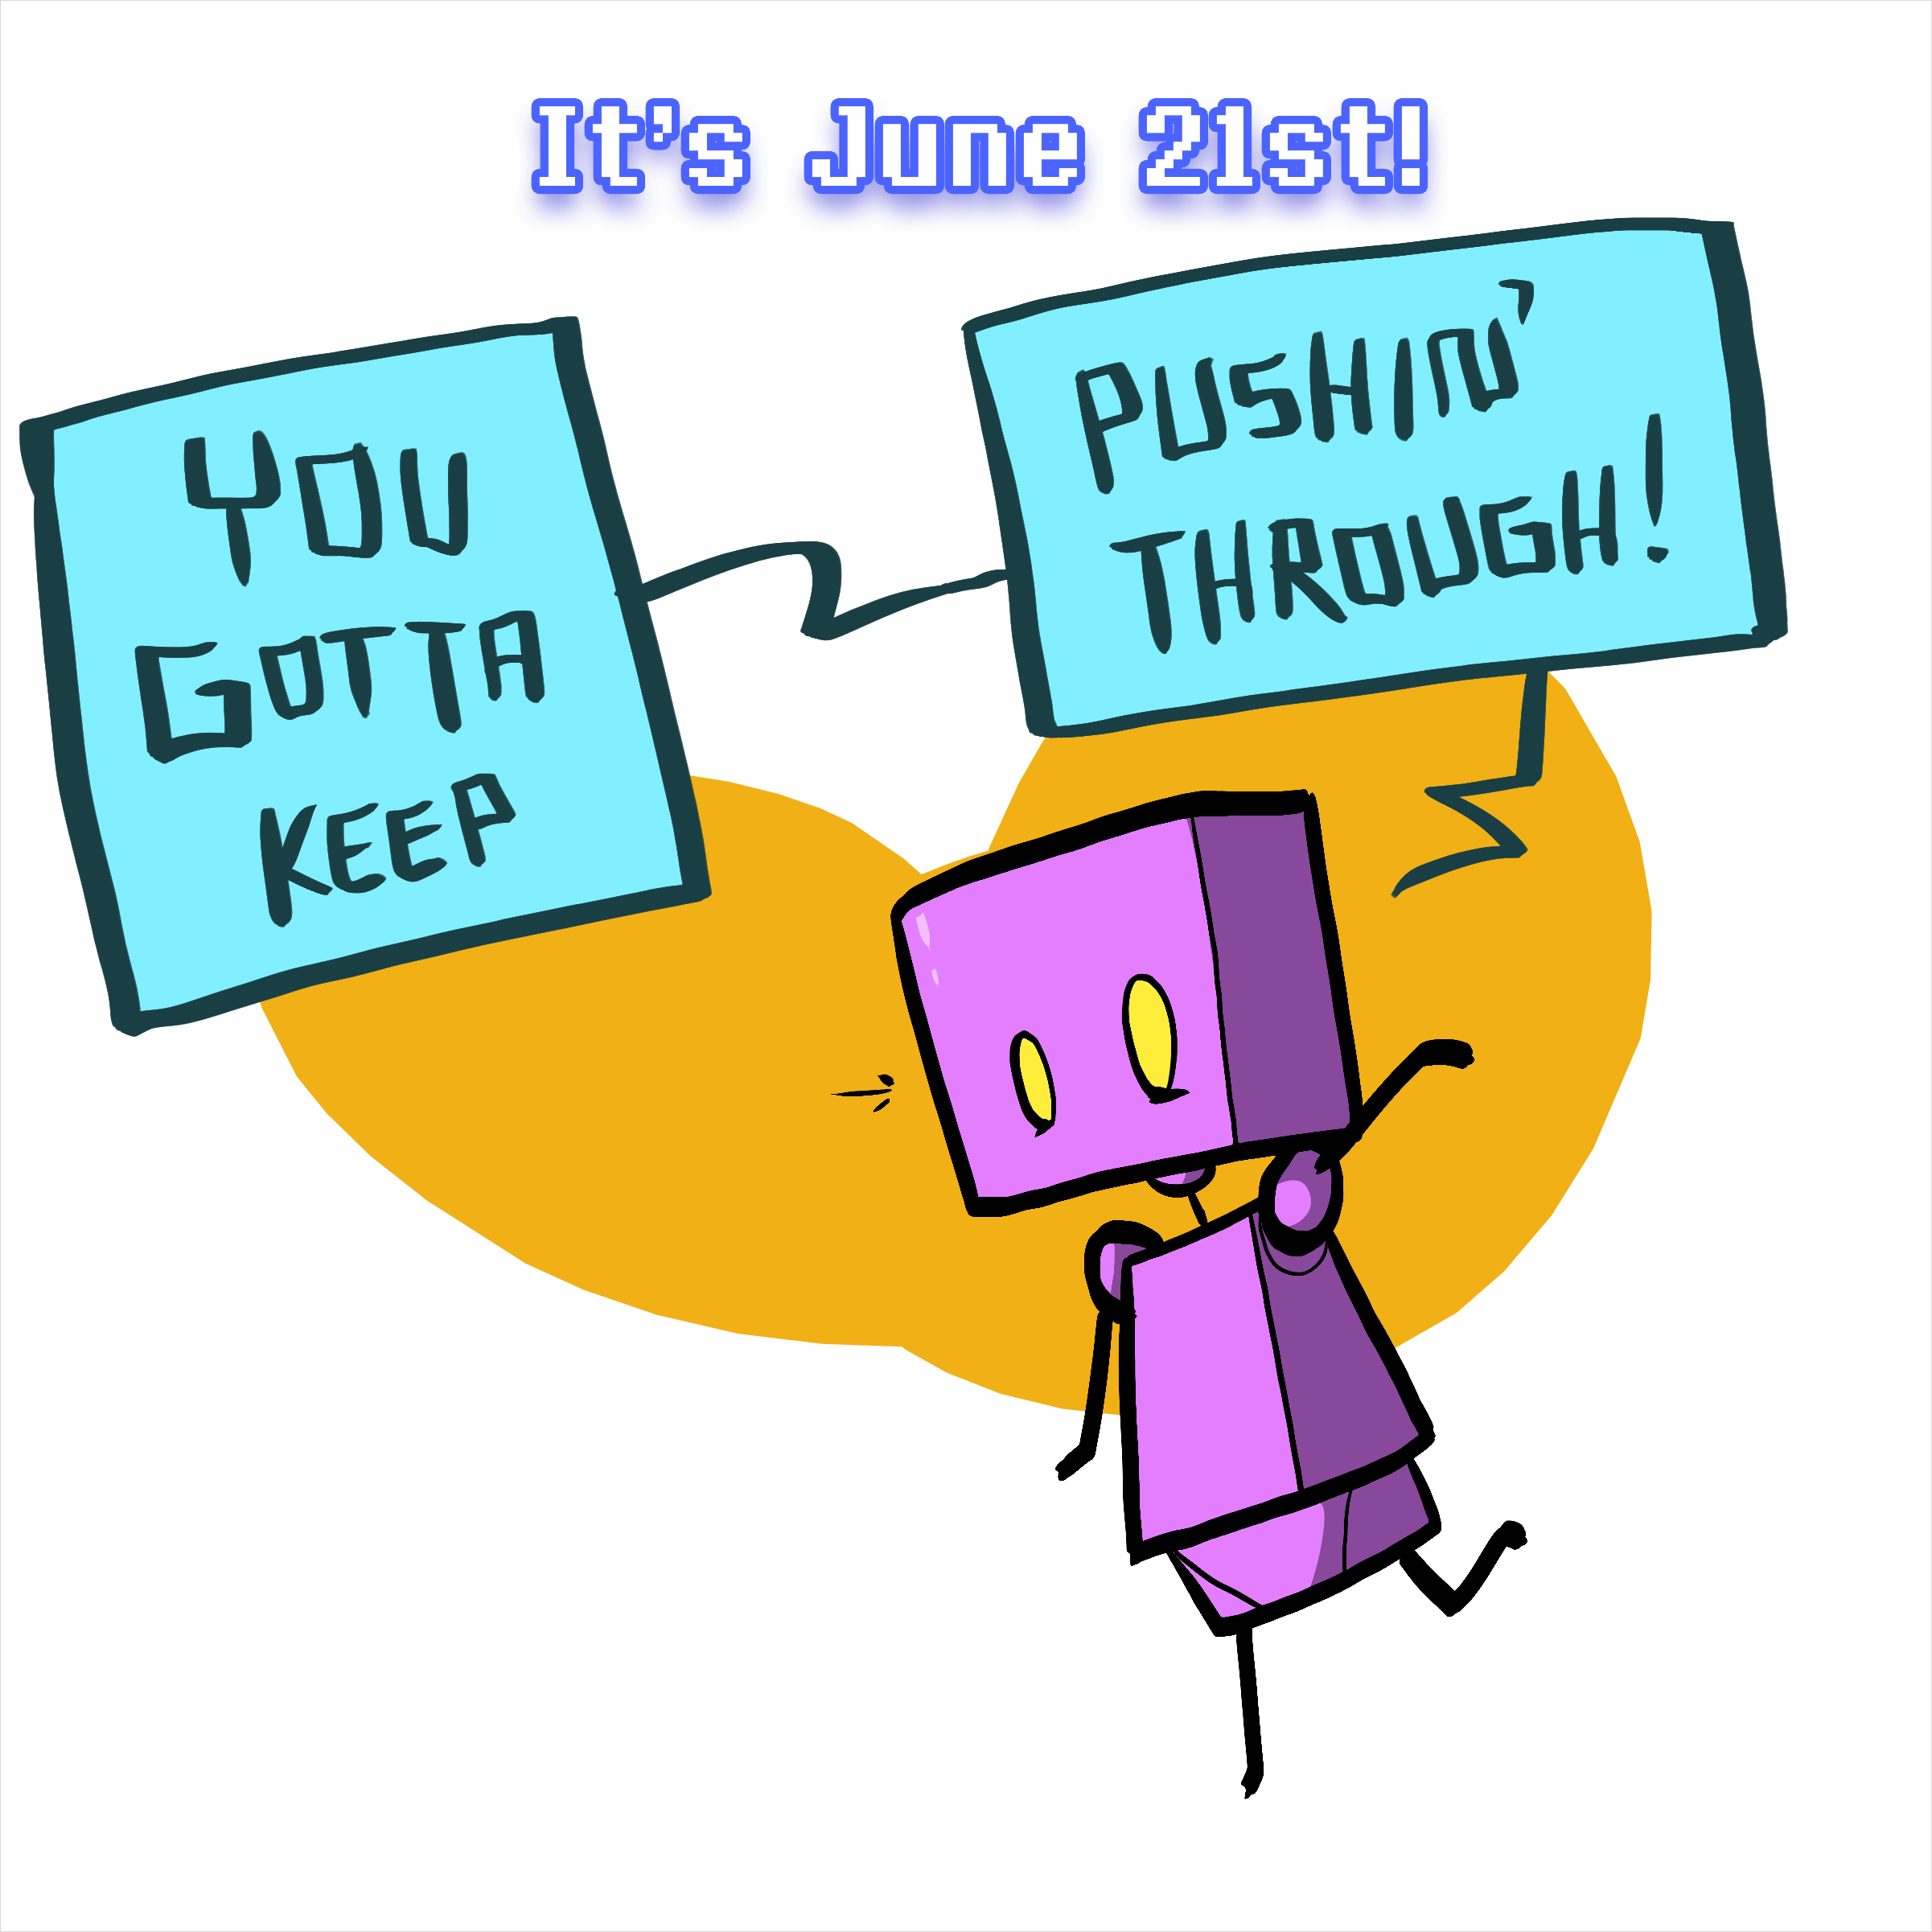 It's June 21st!
YOU
GOTTA
KEEP
PUSHIN'
THROUGH!